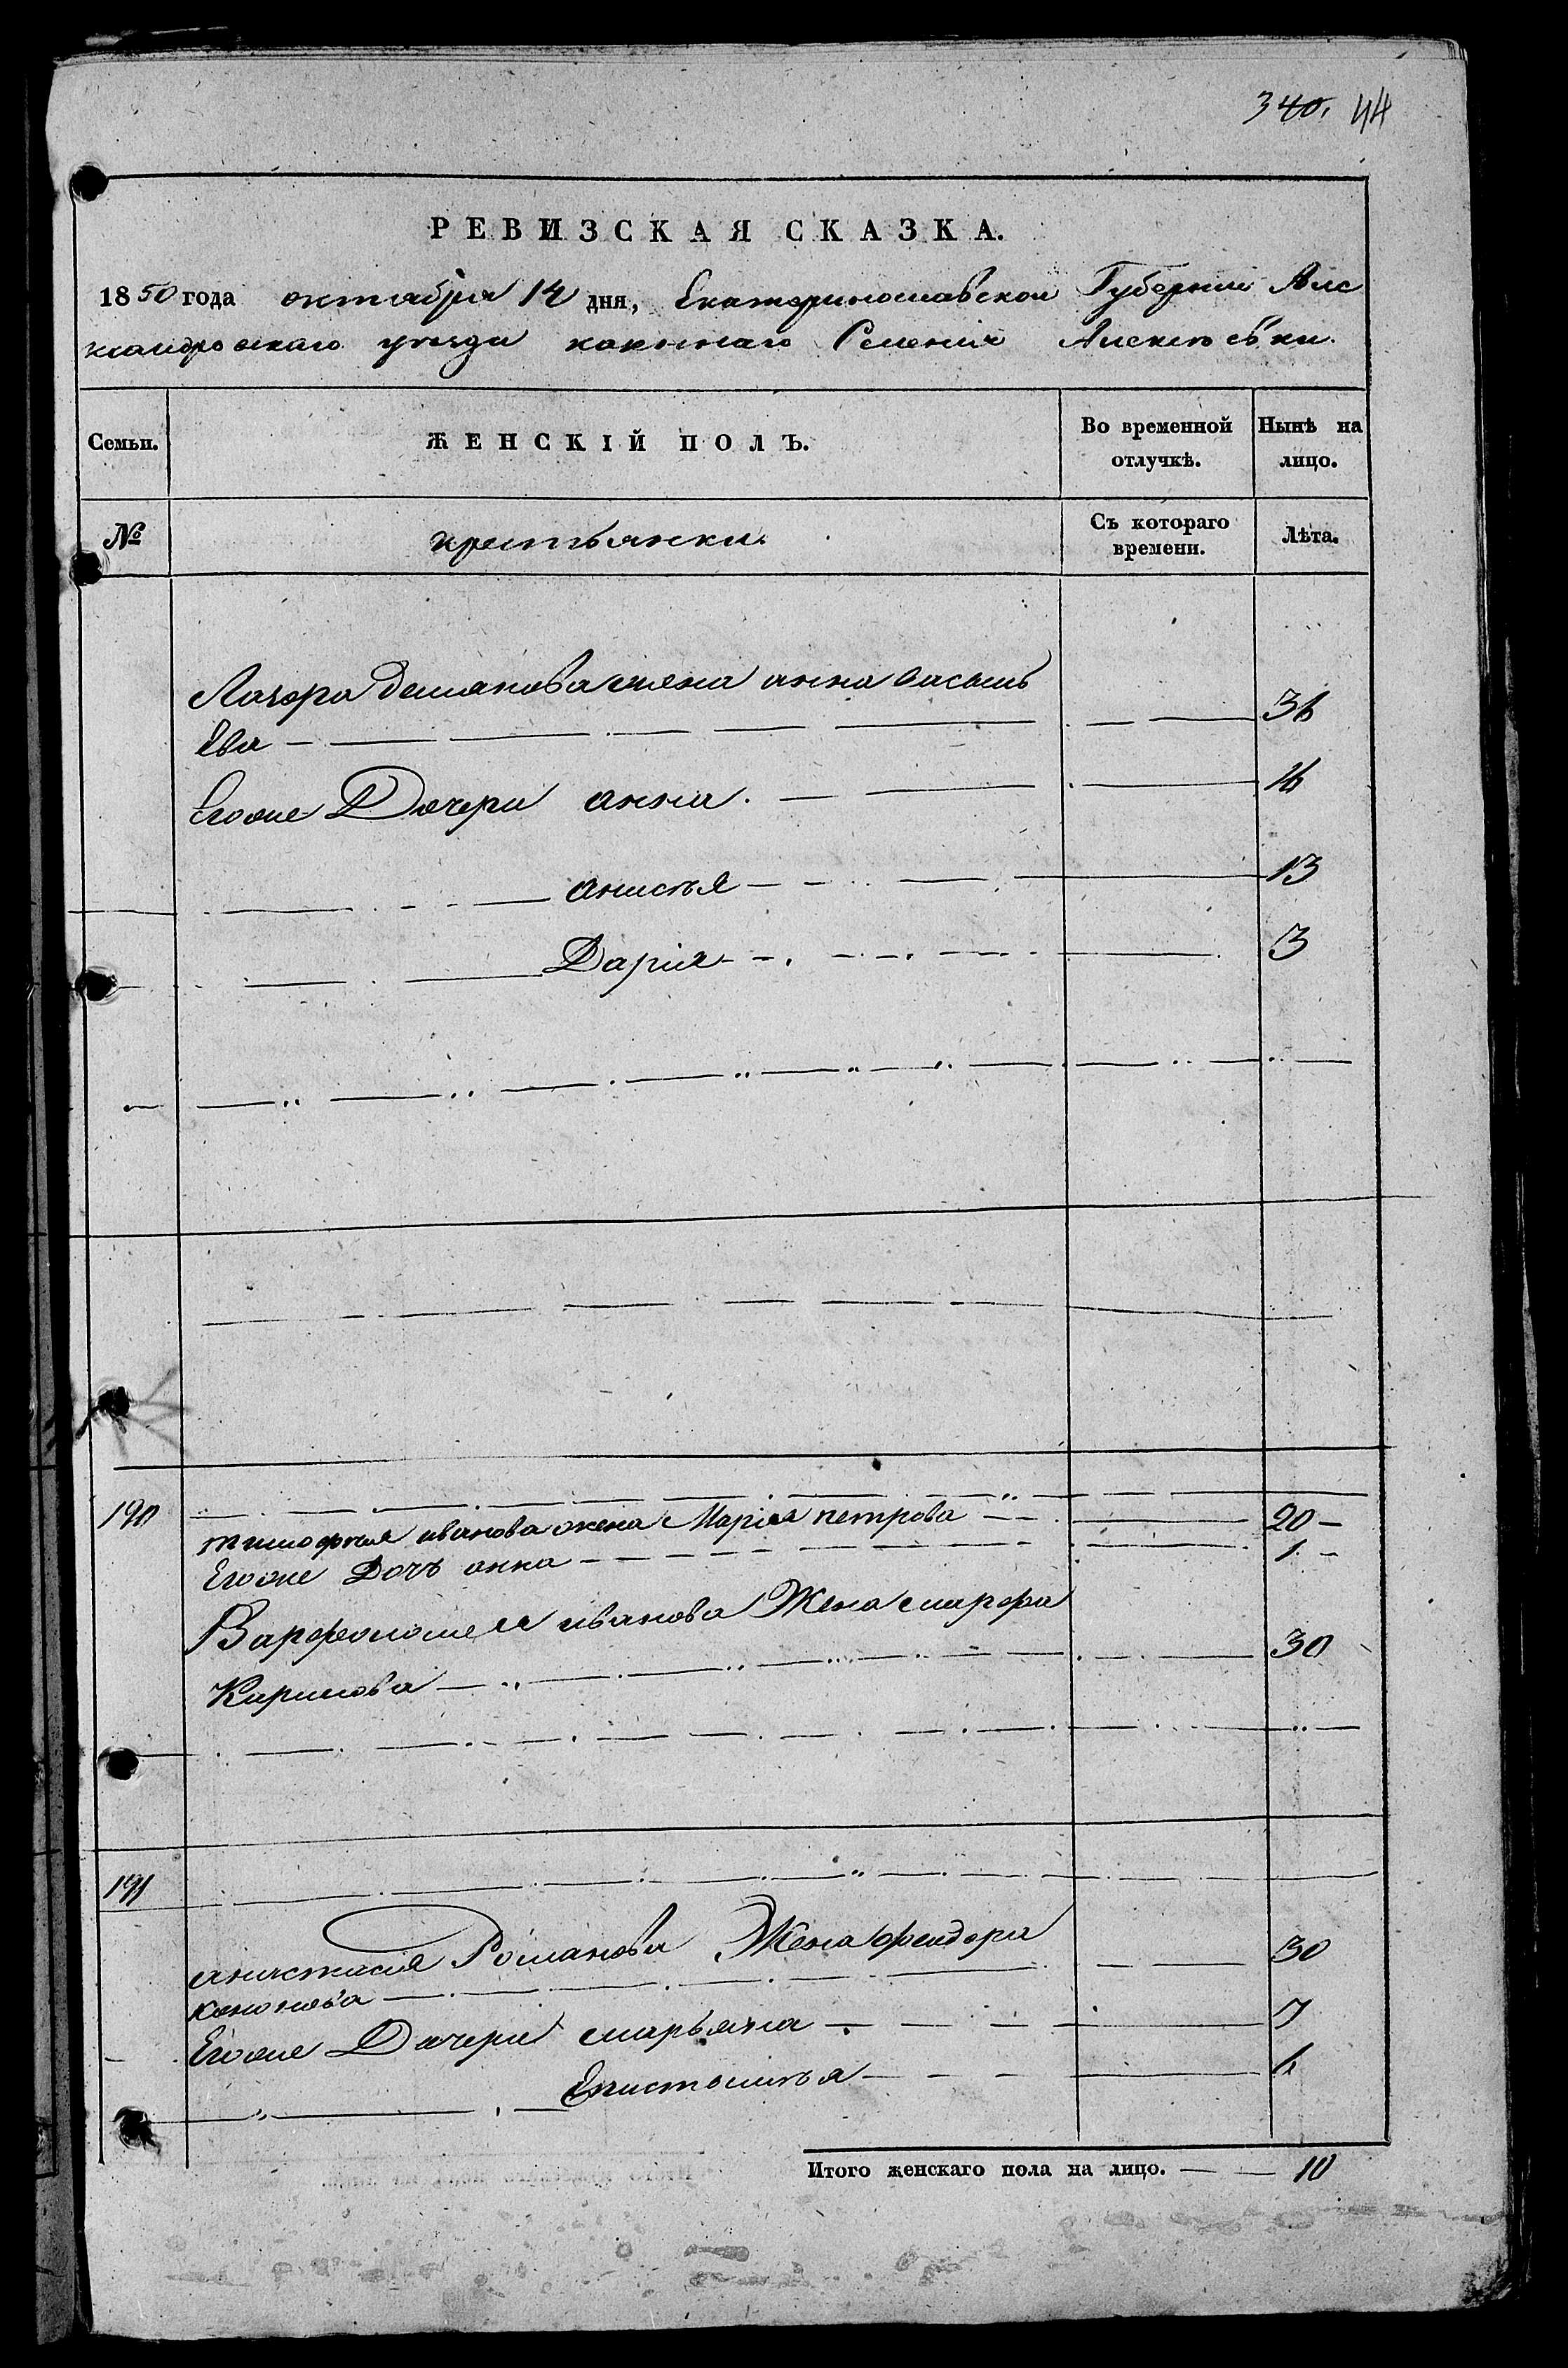 340. 44
РЕВИЗСКАЯ СКАЗКА.
1850 года октября 14 дня, Екатеринославской Губернии Алє
ксандровскаго уезда казеннаго Селения Алексѣевки.
Семьи. ЖЕНСКІЙ ПОЛЪ. Во временной отлучкѣ. Нынѣ на лицо.
№ крестьянки Съ котораго времени. Лѣта.
Лазаря Демянова жена анна васильева
Ева — 36
Егоже Дочери анна. — 16
анисья — 13
Дарія — 3
190
тимофея иванова жена Марія петрова — 20 —
Егоже Дочь анна — 1 —
Варфоломея иванова Жена марфа
Карпова — 30
191
анастасия Романова Жена федора
кононова — 30
Егоже Дочери марьяна — 7
Епистимья — 6
Итого женскаго пола на лицо. — 10